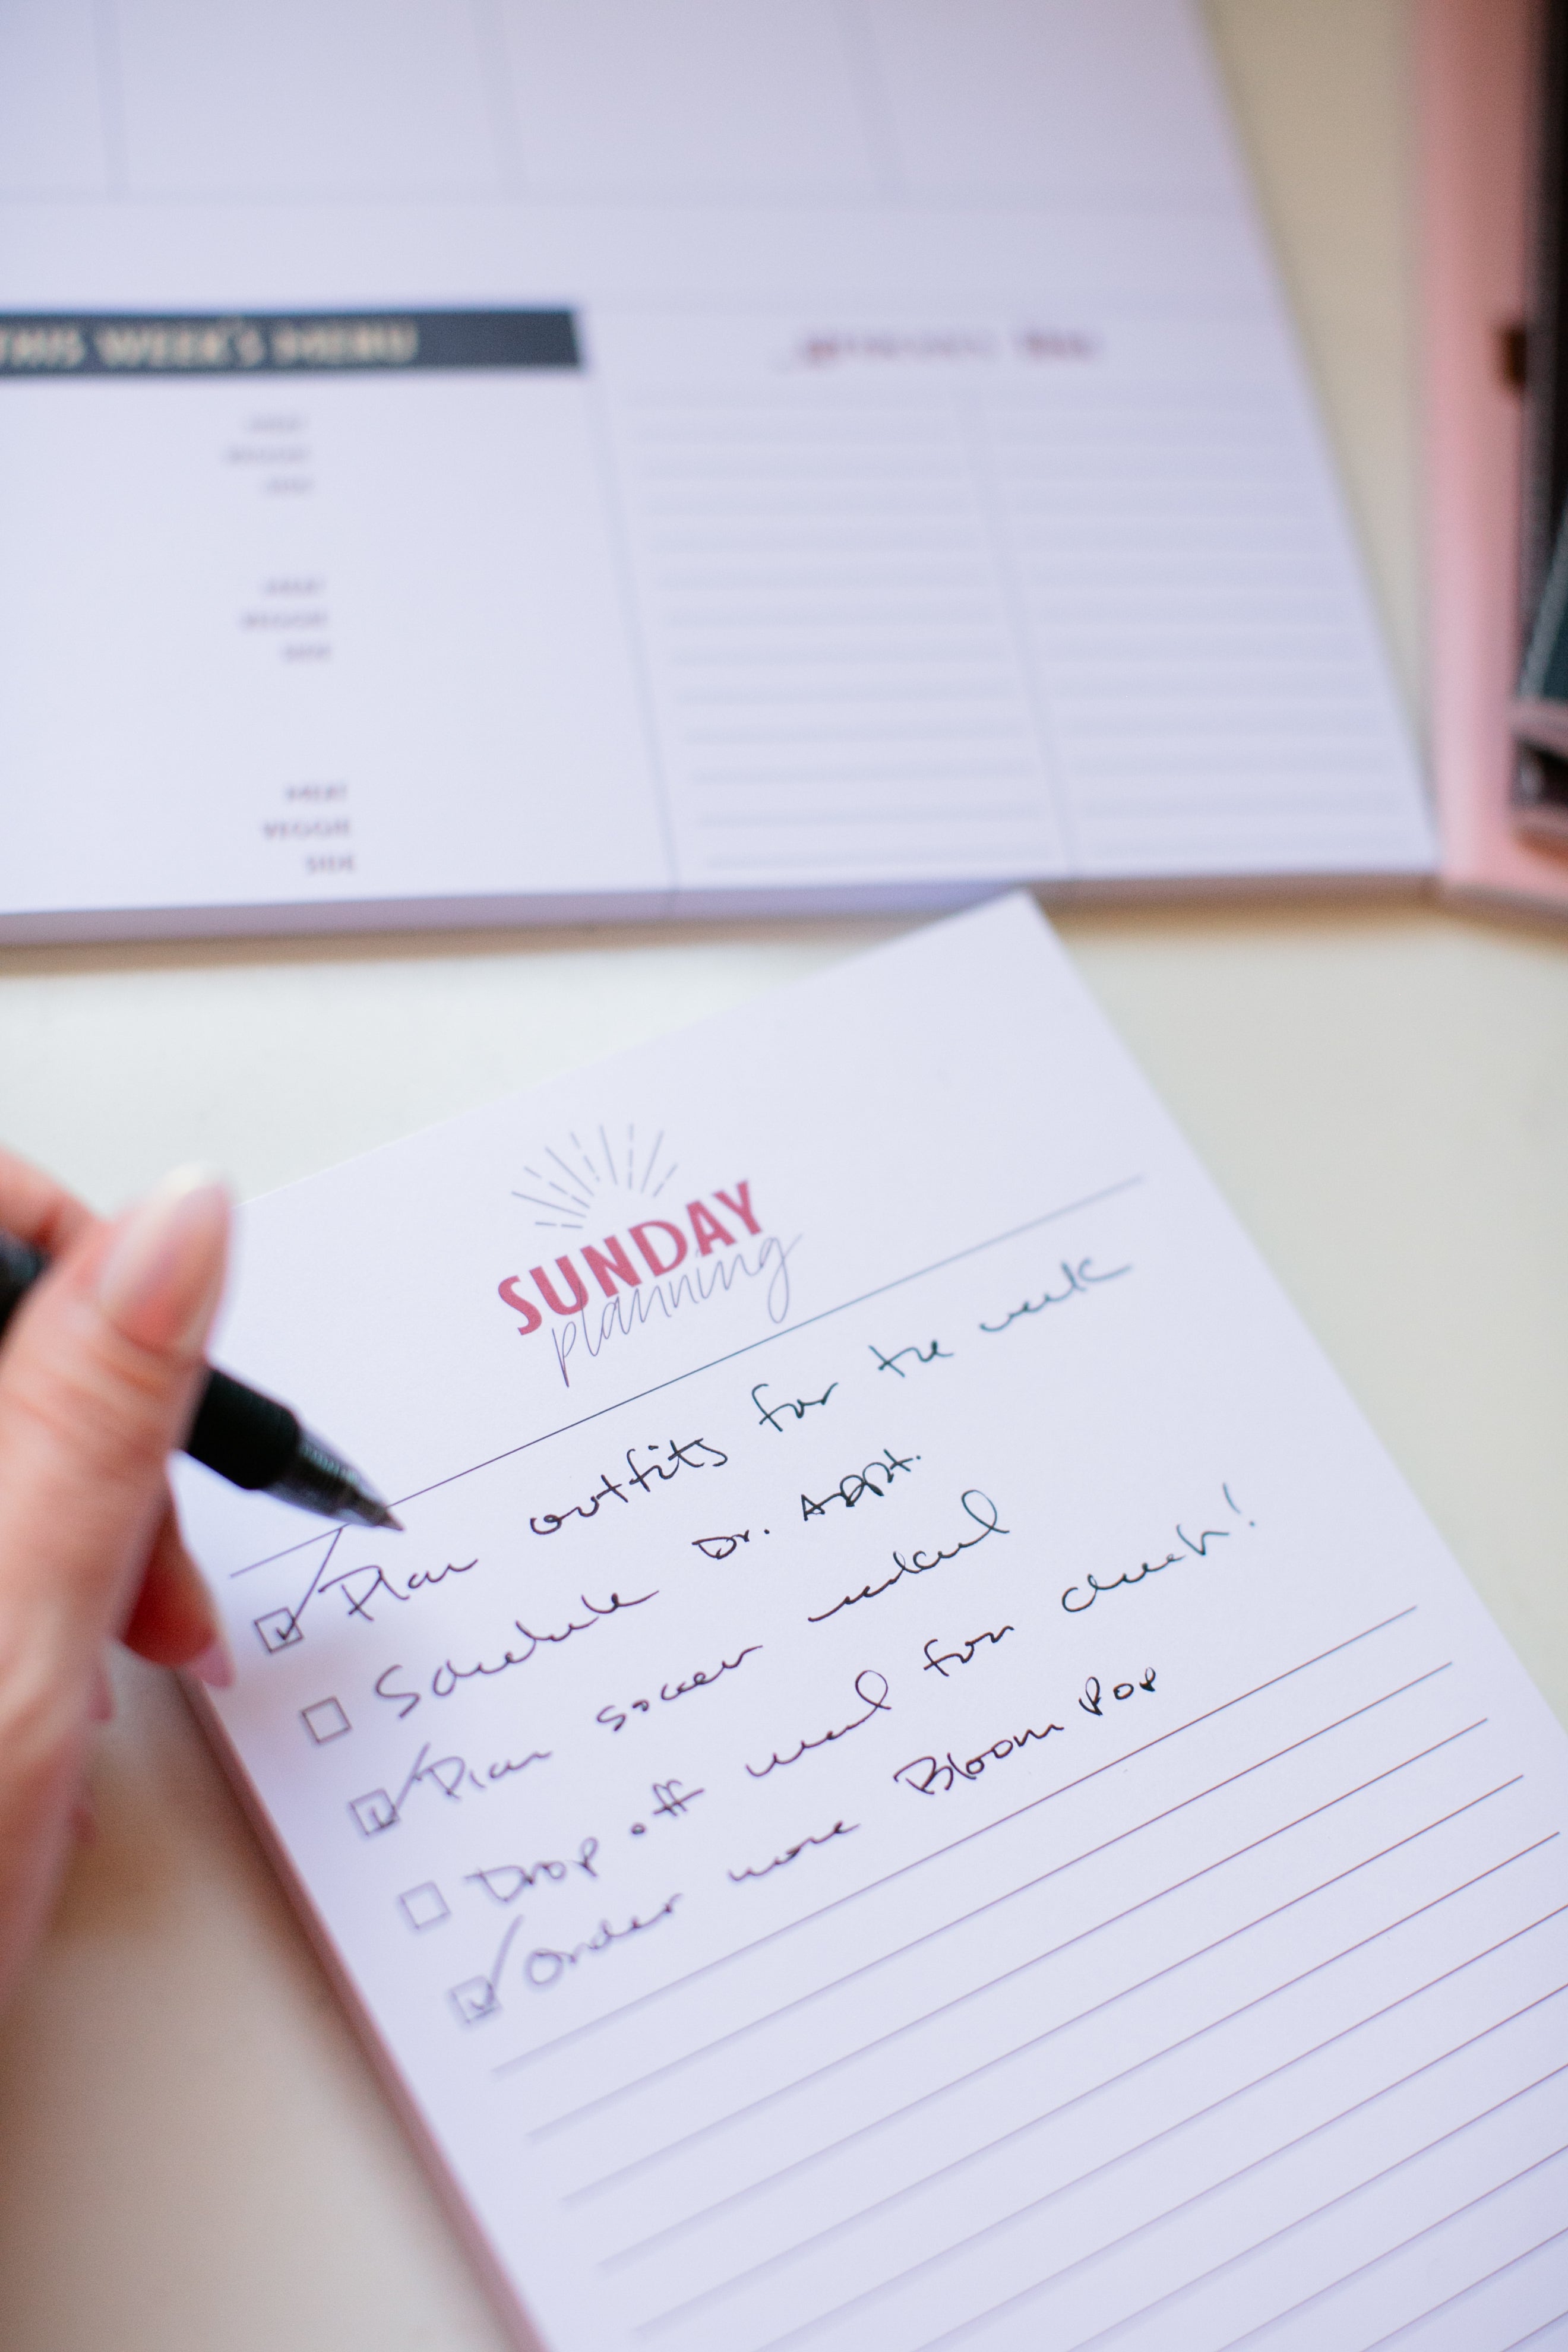 THIS WEEK'S MENU
MEAT
VEGGIE
SIDE
MEAT
VEGGIE
SIDE
MEAT
VEGGIE
SIDE
SUNDAY
planning
Plan outfits for the week
Schedule Dr. Appt.
Plan soccer weekend
Drop off meal for church!
Order more Bloom Pop